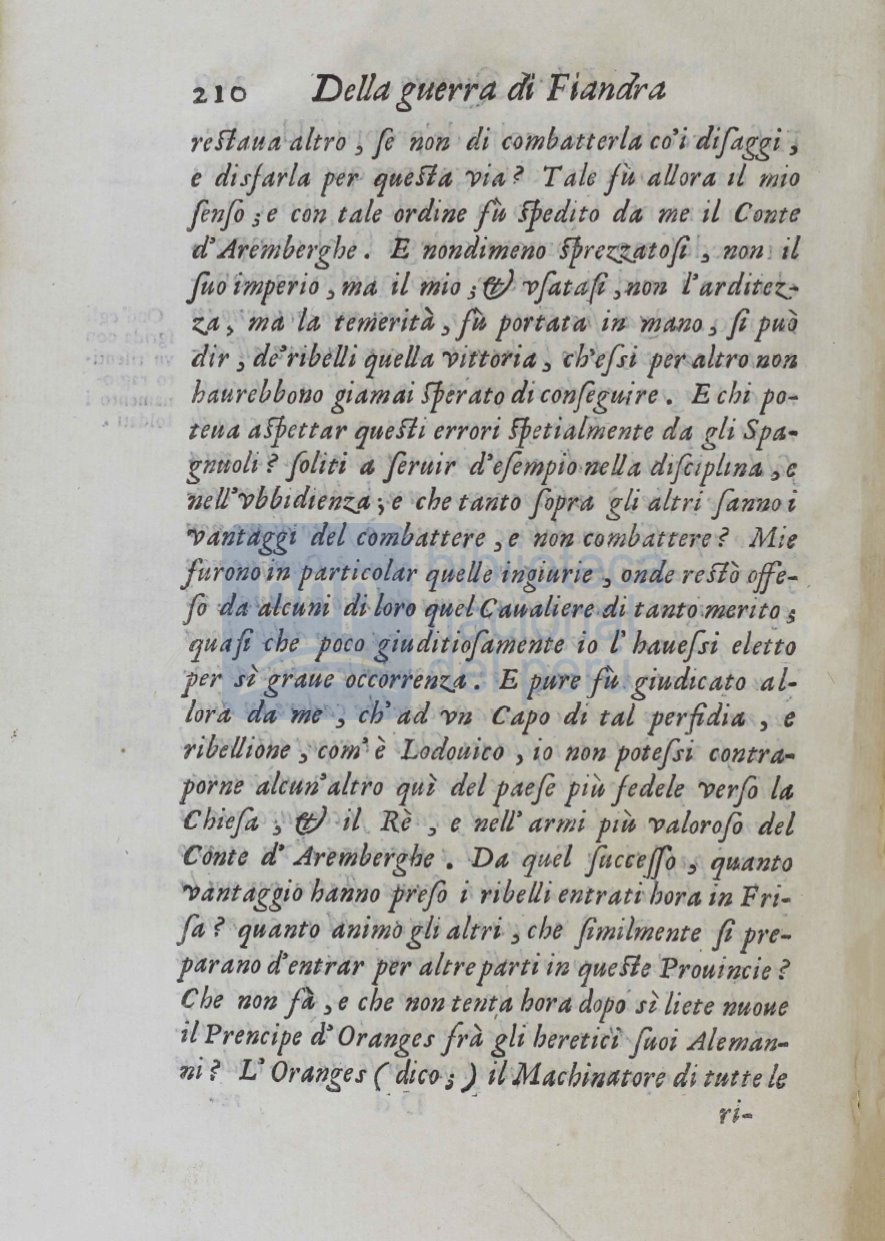 210 Della guerra di Fiandra
reſtaua altro, ſe non di combatterla co'i diſaggi,
e disfarla per queſta via? Tale fù allora il mio
ſenſo; e con tale ordine fù ſpedito da me il Conte
d'Aremberghe. E nondimeno ſprezzatoſi, non il
ſuo imperio, ma il mio; & vſataſi, non l'arditez-
za, ma la temerità, fù portata in mano, ſi può
dir, de'ribelli quella vittoria, ch'eſsi per altro non
haurebbono giamai ſperato di conſeguire. E chi po-
teua aſpettar queſti errori ſpetialmente da gli Spa-
gnuoli? ſoliti a ſeruir d'eſempio nella diſciplina, e
nell'vbbidienza; e che tanto ſopra gli altri ſanno i
vantaggi del combattere, e non combattere? Mie
furono in particolar quelle ingiurie, onde reſtò offe-
ſo da alcuni di loro quel Caualiere di tanto merito;
quaſi che poco giuditioſamente io l'haueſsi eletto
per sì graue occorrenza. E pure fù giudicato al-
lora da me, ch'ad vn Capo di tal perfidia, e
ribellione, com'è Lodouico, io non poteſsi contra-
porne alcun'altro quì del paeſe più fedele verſo la
Chieſa, & il Rè, e nell'armi più valoroſo del
Conte d'Aremberghe. Da quel ſucceſſo, quanto
vantaggio hanno preſo i ribelli entrati hora in Fri-
ſa? quanto animo gli altri, che ſimilmente ſi pre-
parano d'entrar per altre parti in queſte Prouincie?
Che non fà, e che non tenta hora dopo sì liete nuoue
il Prencipe d'Oranges frà gli heretici ſuoi Aleman-
ni? L'Oranges (dico;) il Machinatore di tutte le
ri-